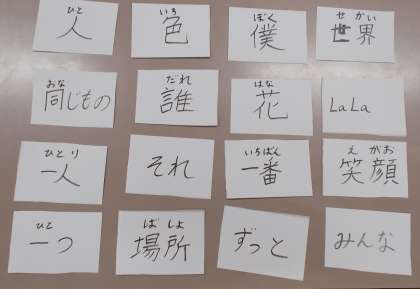 ひと
人
いろ
色
ぼく
僕
せかい
世界
おな
同じもの
だれ
誰
はな
花
LaLa
ひとり
一人
それ
いちばん
一番
えがお
笑顔
ひと
一つ
ばしょ
場所
ずっと
みんな